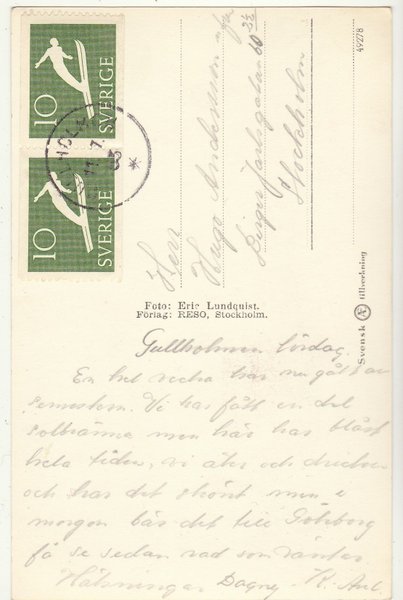 10
SVERIGE
10
SVERIGE
49278
Herr
Hugo Andersson
Birger Jarlsgatan 60
Stockholm
Foto: Eric Lundquist.
Förlag: RESO, Stockholm.
Svensk Æ tillverkning
Gullholmen lördag.
En hel vecka har nu gått av
semestern. Vi har fått en del
solbränna men här har blåst
hela tiden, vi äter och dricker
och har det skönt men i
morgon bär det till Göteborg
få se sedan vad som väntar
Hälsningar Dagny - K.